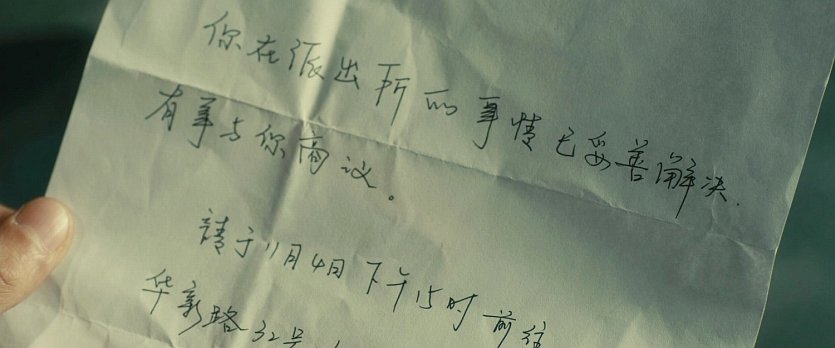 你在派出所的事情已妥善解决.
有事与你商议。
請于11月4日下午15时前往
华新路32号